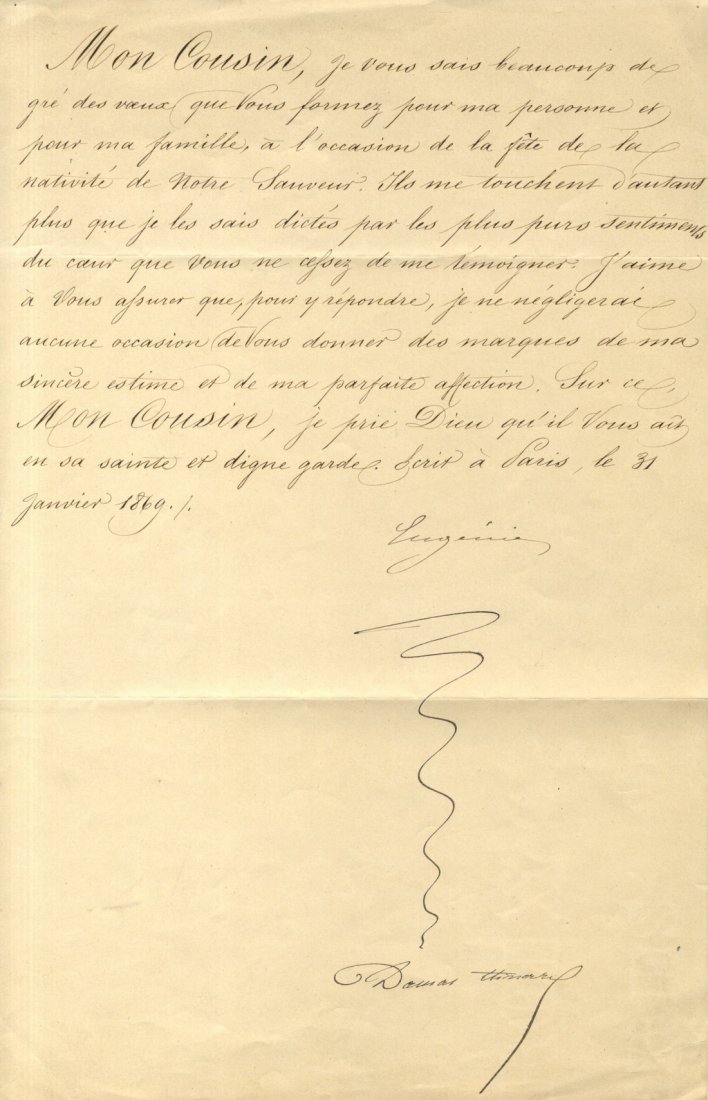 Mon Cousin, je vous sais beaucoup de
gré des vœux que Vous formez pour ma personne et
pour ma famille, à l'occasion de la fête de la
nativité de Notre Sauveur. Ils me touchent d'autant
plus que je les sais dictés par les plus purs sentiments
du cœur que Vous ne cessez de me témoigner. J'aime
à Vous assurer que, pour y répondre, je ne négligerai
aucune occasion de Vous donner des marques de ma
sincère estime et de ma parfaite affection. Sur ce,
Mon Cousin, je prie Dieu qu'il Vous ait
en sa sainte et digne garde. Ecrit à Paris, le 31
Janvier 1869./.
Eugénie
Damas